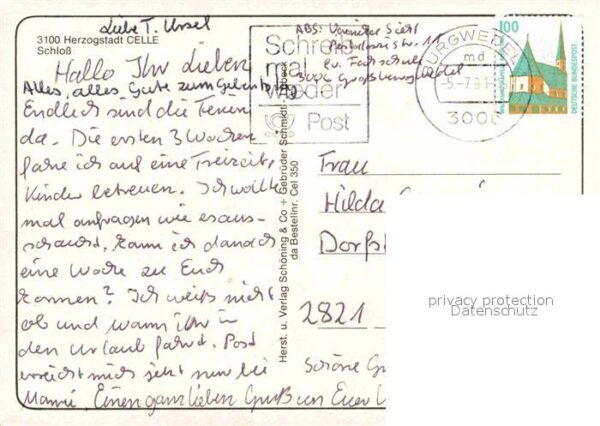 Liebe T. Ursel
3100 Herzogstadt CELLE
Schloß
Hallo Ihr Lieben
Alles, alles Gute zum Geburtstag
Endlich sind die Ferien
da. Die ersten 3 Wochen
fahre ich auf eine Freizeit,
Kinder betreuen. Ich wollte
mal anfragen wie es aus-
schaut, kann ich danach
eine Woche zu Euch
kommen? Ich weiß nicht
ob und wann ihr in
den Urlaub fahrt. Post
erreicht mich jetzt nur bei
Mami. Einen ganz lieben Gruß an Euer
Herst. u. Verlag Schöning & Co + Gebrüder Schmidt - Lübeck
da Bestellnr. Cel 350
ABS:
11
ev. Fachschule
3006 Großburgwedel
Schreib
mal
wieder
Post
BURGWEDEL
md
-5.-7.91-
3006
100
DEUTSCHE BUNDESPOST
Frau
Hilda
Dorfst
2821
Schöne Gr
privacy protection
Datenschutz